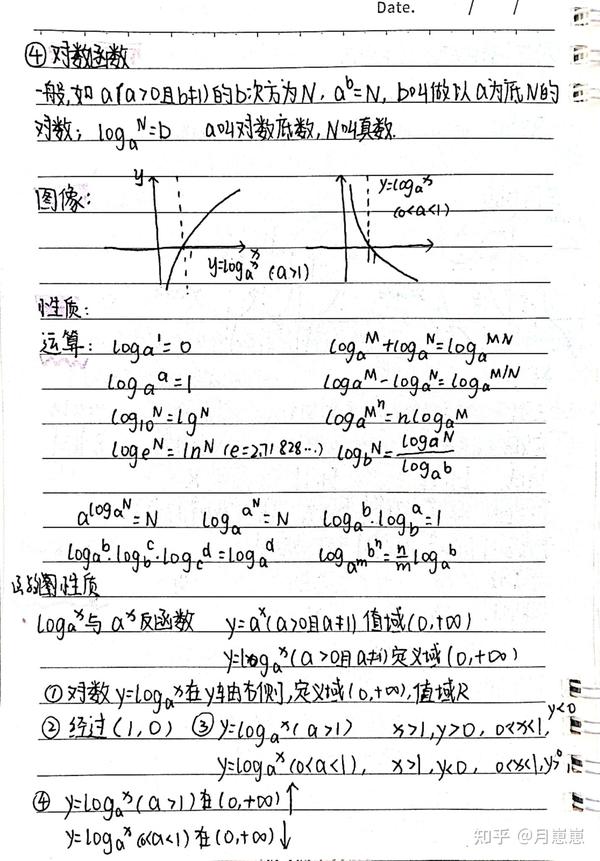 Date. / /
④对数函数
一般,如a(a>0且b≠1)的b次方为N,a^b=N,b叫做以a为底N的
对数;log_a^N=b a叫对数底数,N叫真数.
图像:
y
y=log_a^x (a>1)
y=log_a^x
(0<a<1)
性质:
运算: log_a^1=0 log_a^M+log_a^N=log_a^MN
log_a^a=1 log_a^M-log_a^N=log_a^M/N
log_10^N=lg^N log_a^M^n=nlog_a^M
log_e^N=ln^N (e=2.71828…) log_b^N=log_a^N/log_a^b
a^log_a^N=N log_a^a^N=N log_a^b·log_b^a=1
log_a^b·log_b^c·log_c^d=log_a^d log_a^m^b^n=n/m log_a^b
函数图性质
log_a^x与a^x反函数 y=a^x(a>0且a≠1)值域(0,+∞)
y=log_a^x(a>0且a≠1)定义域(0,+∞)
①对数y=log_a^x在y轴右侧,定义域(0,+∞),值域R
②经过(1,0) ③y=log_a^x(a>1) x>1,y>0, 0<x<1,y<0
y=log_a^x(0<a<1), x>1,y<0, 0<x<1,y>0,
④ y=log_a^x(a>1)在(0,+∞)↑
y=log_a^x 0<a<1)在(0,+∞)↓
知乎 @月崽崽